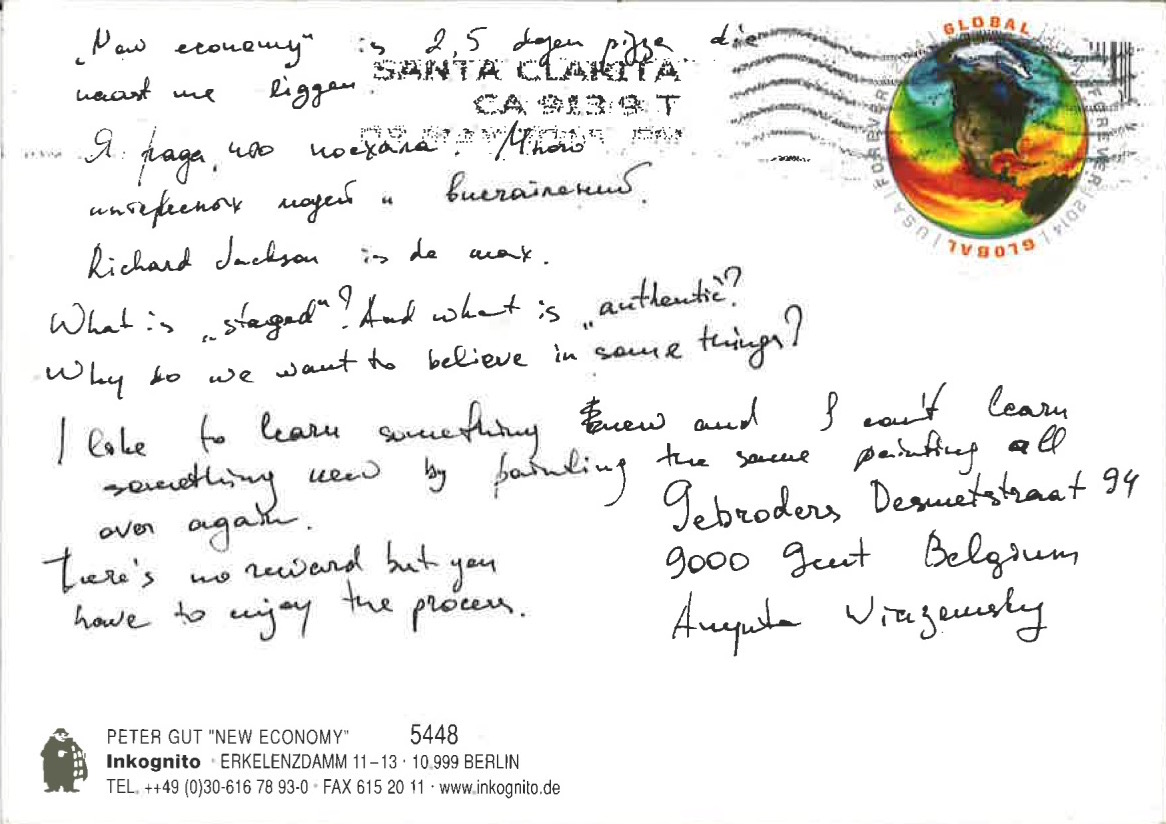 „New economy" is 2,5 dagen pizza die
naast me liggen.
Я рада, что поехала. Много
интересных людей и впечатлений.
Richard Jackson is de max.
What is „staged"? And what is „authentic"?
Why do we want to believe in some things?
I like to learn something new and I can't learn
something new by painting the same painting all
over again.
There's no reward but you
have to enjoy the process.
Gebroders Desmetstraat 94
9000 Gent Belgium
Wiazemsky
SANTA CLARITA
CA 913
GLOBAL
USA | FOREVER | 2014
GLOBAL
FOREVER | 2014
PETER GUT "NEW ECONOMY" 5448
Inkognito · ERKELENZDAMM 11–13 · 10.999 BERLIN
TEL. ++49 (0)30-616 78 93-0 · FAX 615 20 11 · www.inkognito.de